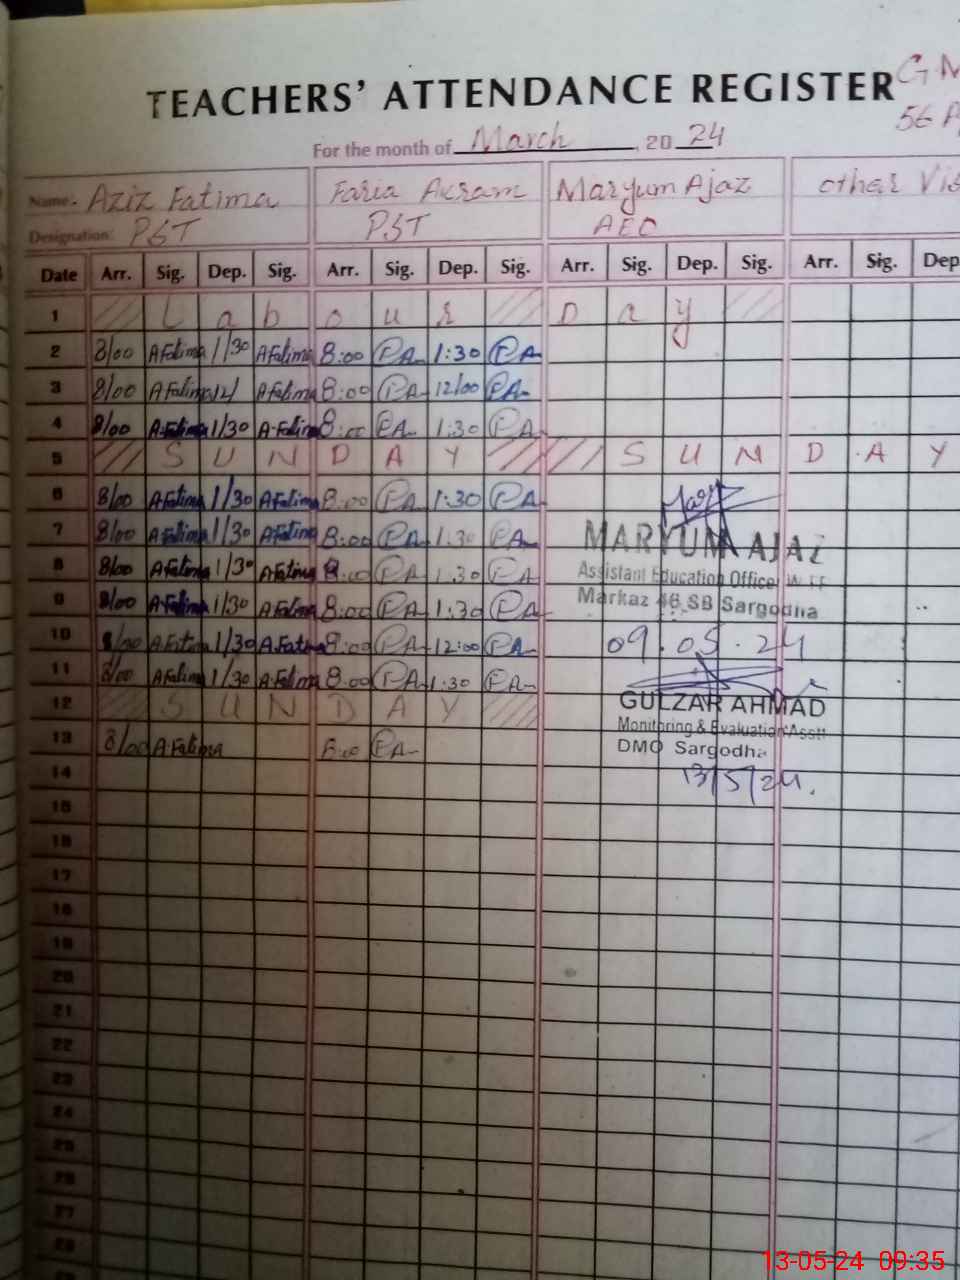 TEACHERS' ATTENDANCE REGISTER G M
56 A
For the month of March, 20 24
Name:- Aziz Fatima Faria Akram Maryum Ajaz other Vis
Designation: PST PST AEO
Date Arr. Sig. Dep. Sig. Arr. Sig. Dep. Sig. Arr. Sig. Dep. Sig. Arr. Sig. Dep
1 L a b o u r D a y
2 8/00 A Fatima 1/30 A Fatima 8:00 FA 1:30 FA
3 8/00 A Fatima 12/ A Fatima 8:00 FA 12/00 FA
4 8/00 A Fatima 1/30 A Fatima 8:00 FA 1:30 FA
5 S U N D A Y S U N D A Y
6 8/00 A Fatima 1/30 A Fatima 8:00 FA 1:30 FA
7 8/00 A Fatima 1/30 A Fatima 8:00 FA 1:30 FA
MARYUM AJAZ
8 8/00 A Fatima 1/30 A Fatima 8:00 FA 1:30 FA
Assistant Education Officer W-EE
9 8/00 A Fatima 1/30 A Fatima 8:00 FA 1:30 FA
Markaz 46 SB Sargodha
10 8/00 A Fatima 1/30 A Fatima 8:00 FA 12:00 FA 09.05.24
11 8/00 A Fatima 1/30 A Fatima 8:00 FA 1:30 FA
12 S U N D A Y GULZAR AHMAD
Monitoring & Evaluation Asstt
13 8/00 A Fatima 8:00 FA DMO Sargodha
14 13/5/24.
15
16
17
18
19
20
21
22
23
24
25
26
27
28
13-05-24 09:35